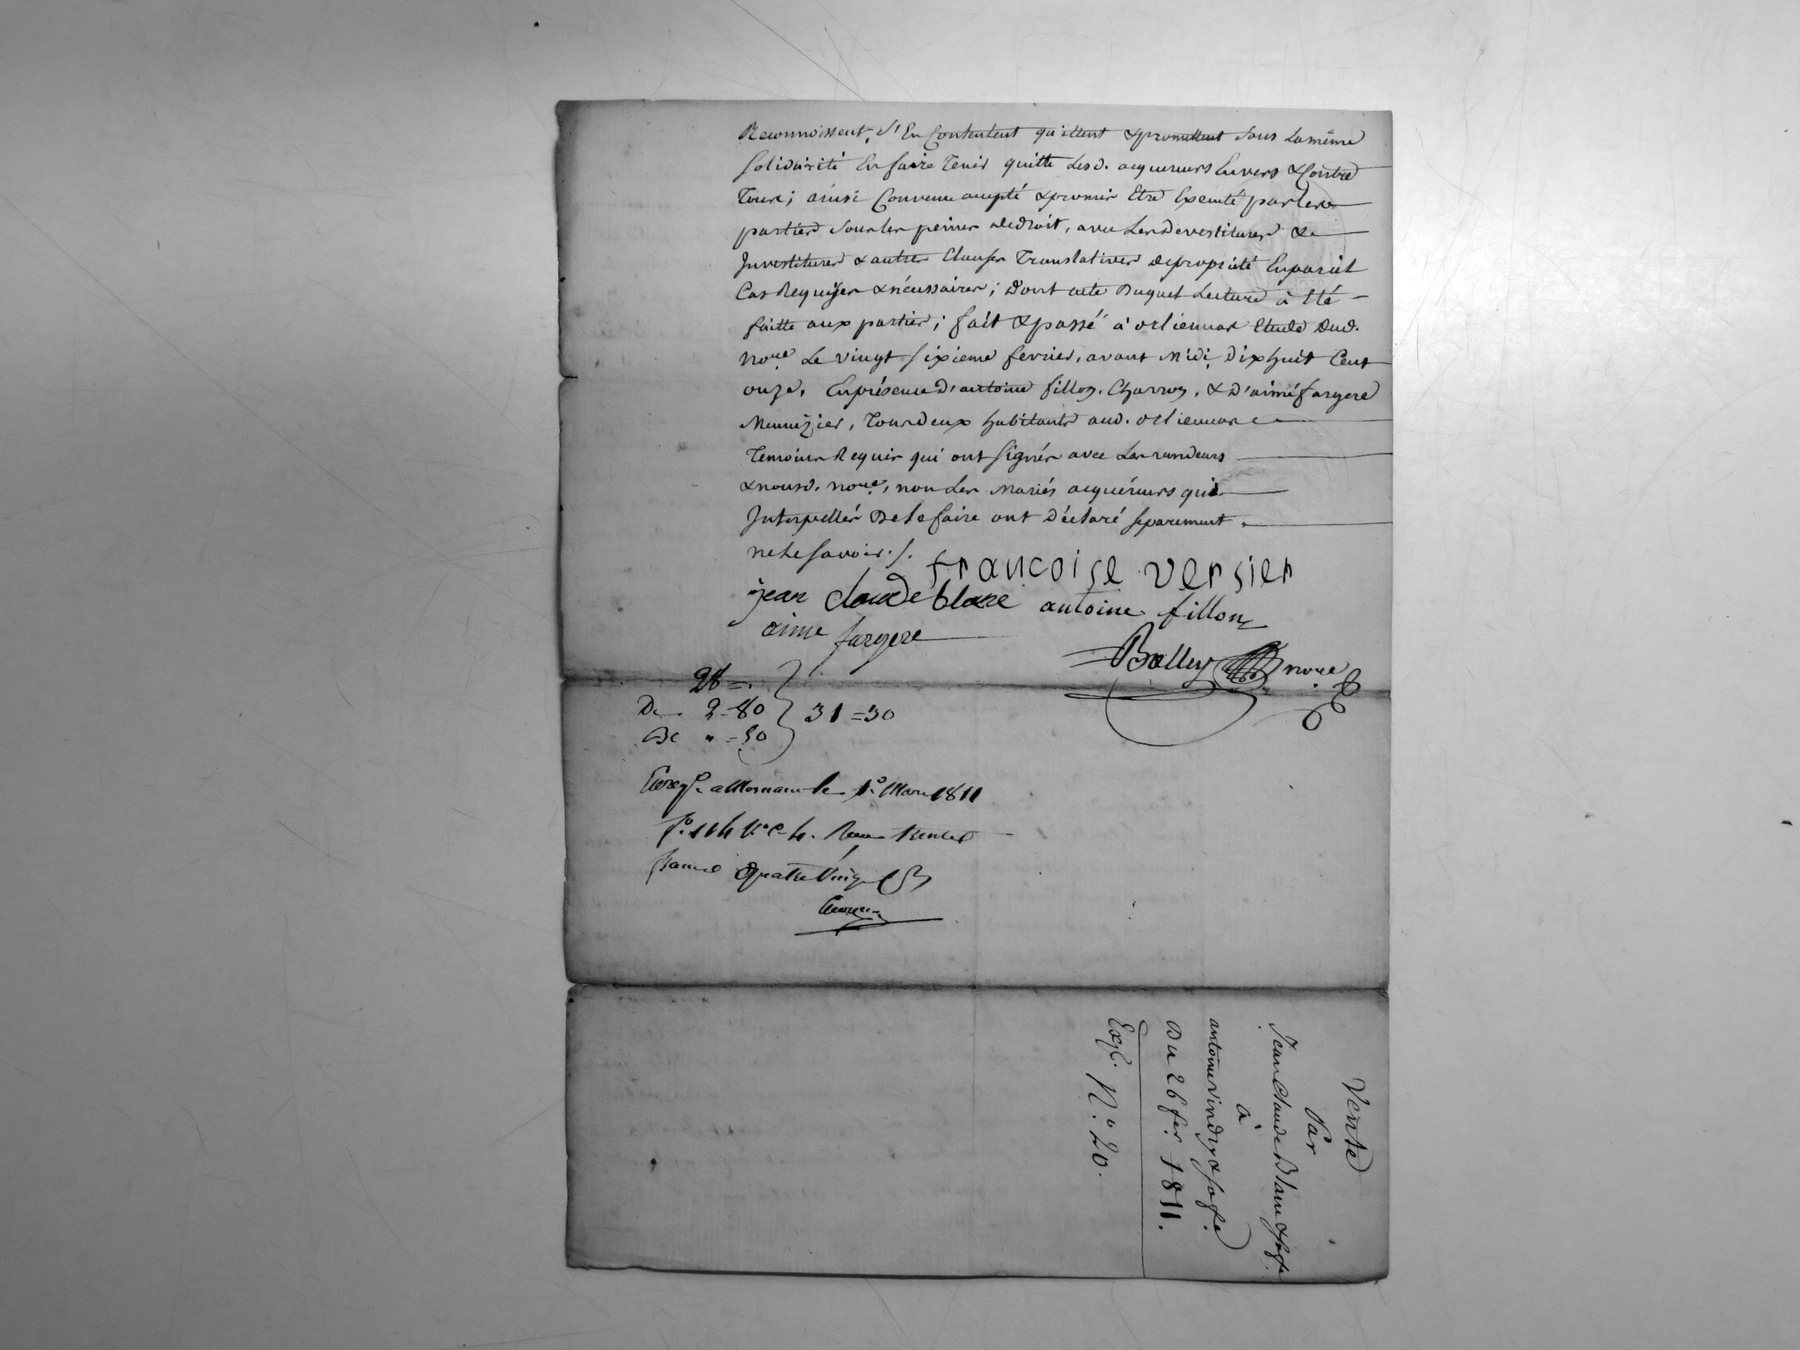 Reconnoissent, s'En Contentent quittent & promettent sous La même
solidarité En faire Tenir quitte Lesd. acquereurs Envers & Contre
Tous; ainsi Convenu accepté & promis Etre Executé par les
parties sous les peines de droit, avec Les Devestitures &
Investitures & autres Clauses Translatives de propriété En pareil
Cas Requises & nécessaires; Dont acte Duquel Lecture à Eté
faitte aux parties; fait & passé à orliennas Etude Dud.
no.re Le vingt sixieme fevrier, avant Midi, Dix huit Cent
onze, En présence D'antoine fillon, Charron, & D'aimé fargere
Menuizier, Tous deux habitants aud. orliennas
Temoins Requis qui ont signés avec Les vendeurs
& nousd. no.re, non Les Mariés acquéreurs qui
Interpellés De le faire ont Déclaré séparement
ne le savoir ./.
francoise versier
jean claude blanc antoine fillon
aime fargere
Balley no.re
28 = .
De 2 = 80 31 = 30
De " = 50
Enreg.é a Mornant le 1.er Mars 1811
f.o 114 V.o C. 4. Recu trente
francs quatre vingt
Vente
Par
Jean Claude Blanc & sa fe.
à
antoine vindry & sa fe.
Du 26 fer. 1811.
Exp. N.o 20.